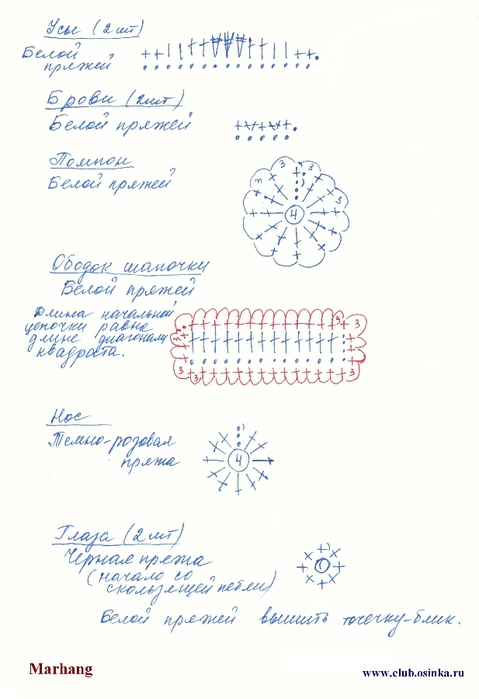 Усы (2 шт)
Белой
пряжей
Брови (2 шт)
Белой пряжей
Помпон
Белой пряжей
3 3
3 3
4
Ободок шапочки
Белой пряжей
Длина начальной
цепочки равна
длине диагонали
квадрата.
3 3
3
3 3 3
Нос
Темно-розовая
пряжа
4
Глаза (2 шт)
Черная пряжа
(начало со
скользящей петли)
Белой пряжей вышить точечку-блик.
Marhang
www.club.osinka.ru